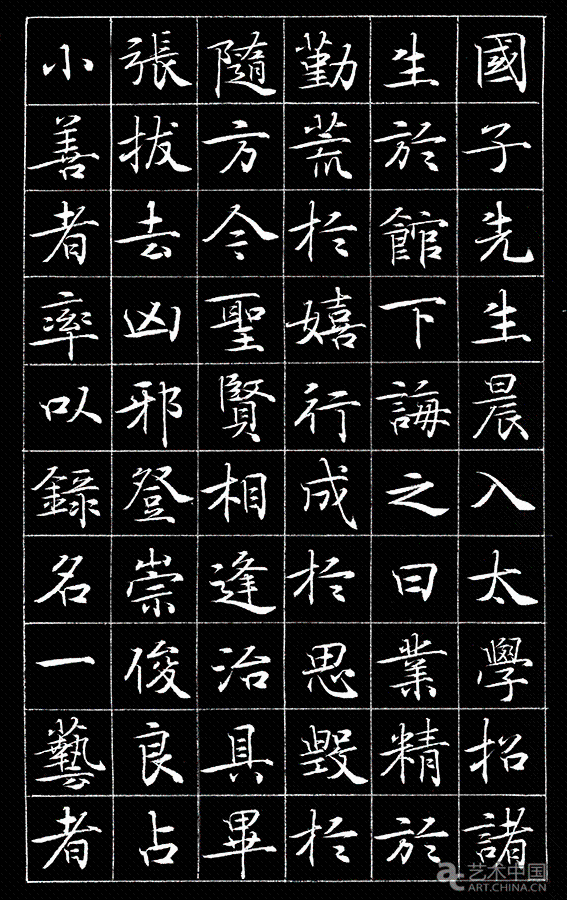 國子先生晨入太學招諸
生於館下誨之曰業精於
勤荒於嬉行成於思毀於
隨方今聖賢相逢治具畢
張拔去凶邪登崇俊良占
小善者率以錄名一藝者
艺术中国
ART.CHINA.CN